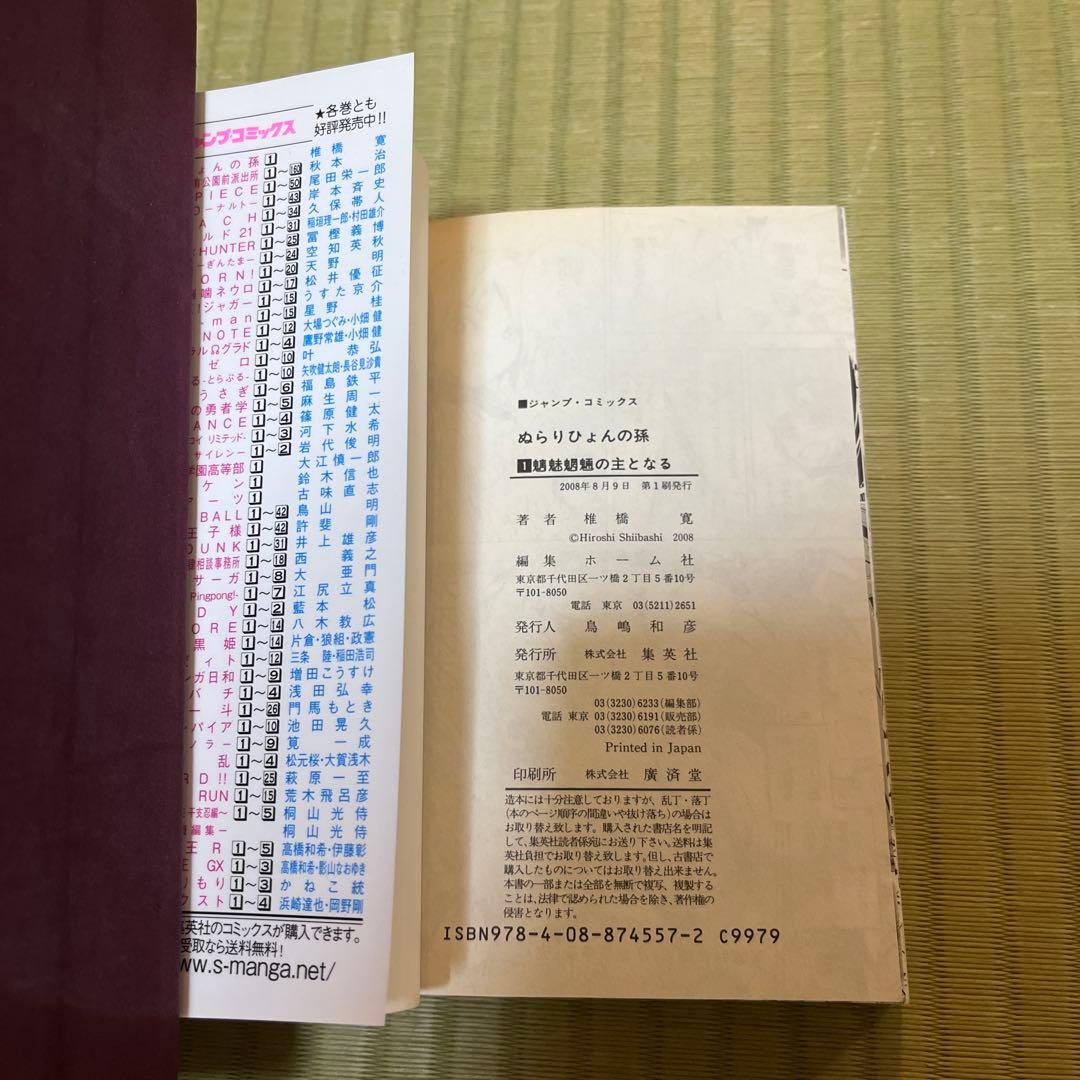 ★各巻とも
好評発売中!!
ャンプ・コミックス
ょんの孫 1 椎橋寛
公園前派出所 1～160 秋本治
PIECE 1～50 尾田栄一郎
ーナルトー 1～43 岸本斉史
ACH 1～34 久保帯人
ルド21 1～31 稲垣理一郎・村田雄介
HUNTER 1～25 冨樫義博
ーぎんたまー 1～24 空知英秋
ORN! 1～20 天野明
噛ネウロ 1～17 松井優征
!ジャガー 1～15 うすた京介
man 1～15 星野桂
NOTE 1～12 大場つぐみ・小畑健
ラルΩグラド 1～4 鷹野常雄・小畑健
ゼロ 1～10 叶恭弘
る-とらぶる- 1～10 矢吹健太朗・長谷見沙貴
うさぎ 1～6 福島鉄平
の勇者学 1～5 麻生周一
ANCE 1～4 篠原健太
コイ リミテッド- 1～3 河下水希
サイレン- 1～2 岩代俊明
園高等部 1 大江慎一郎
ケン 1 鈴木信也
ーツ 1 古味直志
BALL 1～42 鳥山明
王子様 1～42 許斐剛
DUNK 1～31 井上雄彦
相談事務所 1～18 西義之
サーガ 1～8 大亜門
Pingpong!- 1～7 江尻立真
DY 1～2 藍本松
ORE 1～14 八木教広
黒姫 1～14 片倉・狼組・政憲
ィト 1～12 三条陸・稲田浩司
ンガ日和 1～9 増田こうすけ
バチ 1～4 浅田弘幸
ー斗 1～26 門馬もとき
パイア 1～10 池田晃久
ノラー 1～9 筧一成
乱 1～4 松元桜・大賀浅木
RD!! 1～25 萩原一至
RUN 1～15 荒木飛呂彦
干支忍編～ 1～5 桐山光侍
編集ー 桐山光侍
王R 1～5 高橋和希・伊藤彰
E GX 1～3 高橋和希・影山なおゆき
りもり 1～3 かねこ統
クスト 1～4 浜崎達也・岡野剛
英社のコミックスが購入できます。
受取なら送料無料!
ww.s-manga.net/
■ジャンプ・コミックス
ぬらりひょんの孫
1魑魅魍魎の主となる
2008年8月9日 第1刷発行
著者 椎橋寛
©Hiroshi Shiibashi 2008
編集 ホーム社
東京都千代田区一ツ橋2丁目5番10号
〒101-8050
電話 東京 03(5211)2651
発行人 鳥嶋和彦
発行所 株式会社 集英社
東京都千代田区一ツ橋2丁目5番10号
〒101-8050
03(3230)6233(編集部)
電話 東京 03(3230)6191(販売部)
03(3230)6076(読者係)
Printed in Japan
印刷所 株式会社 廣済堂
造本には十分注意しておりますが、乱丁・落丁
(本のページ順序の間違いや抜け落ち)の場合は
お取り替え致します。購入された書店名を明記
して、集英社読者係宛にお送り下さい。送料は集
英社負担でお取り替え致します。但し、古書店で
購入したものについてはお取り替え出来ません。
本書の一部または全部を無断で複写、複製する
ことは、法律で認められた場合を除き、著作権の
侵害となります。
ISBN978-4-08-874557-2 C9979